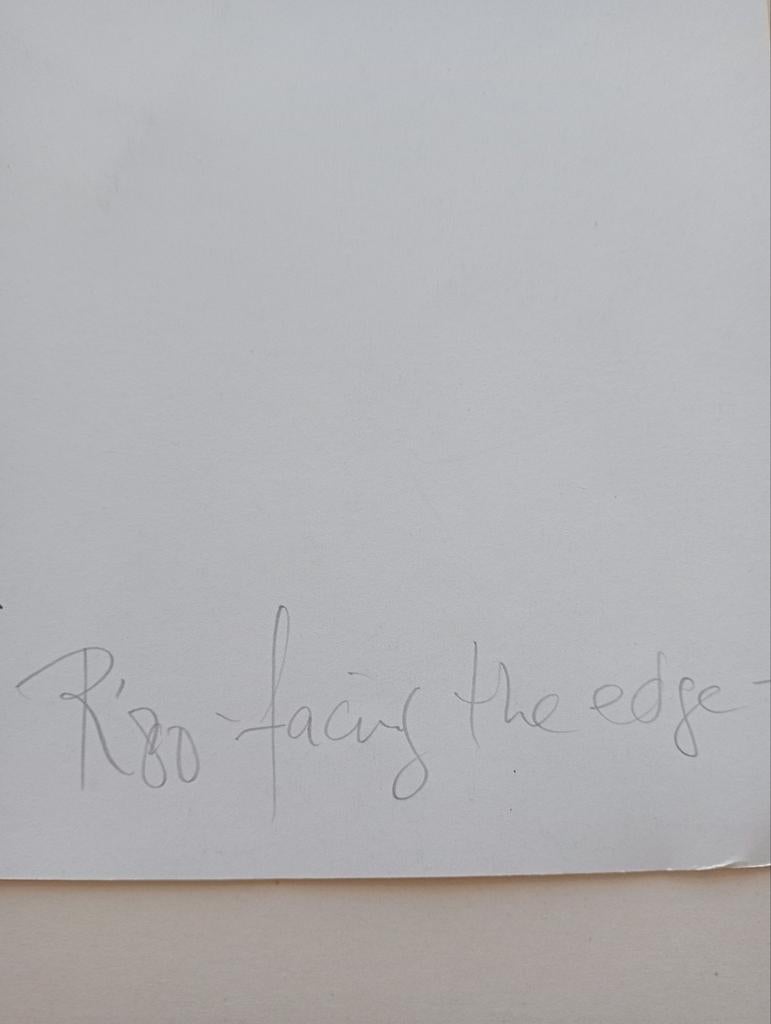 R'80 - facing the edge -